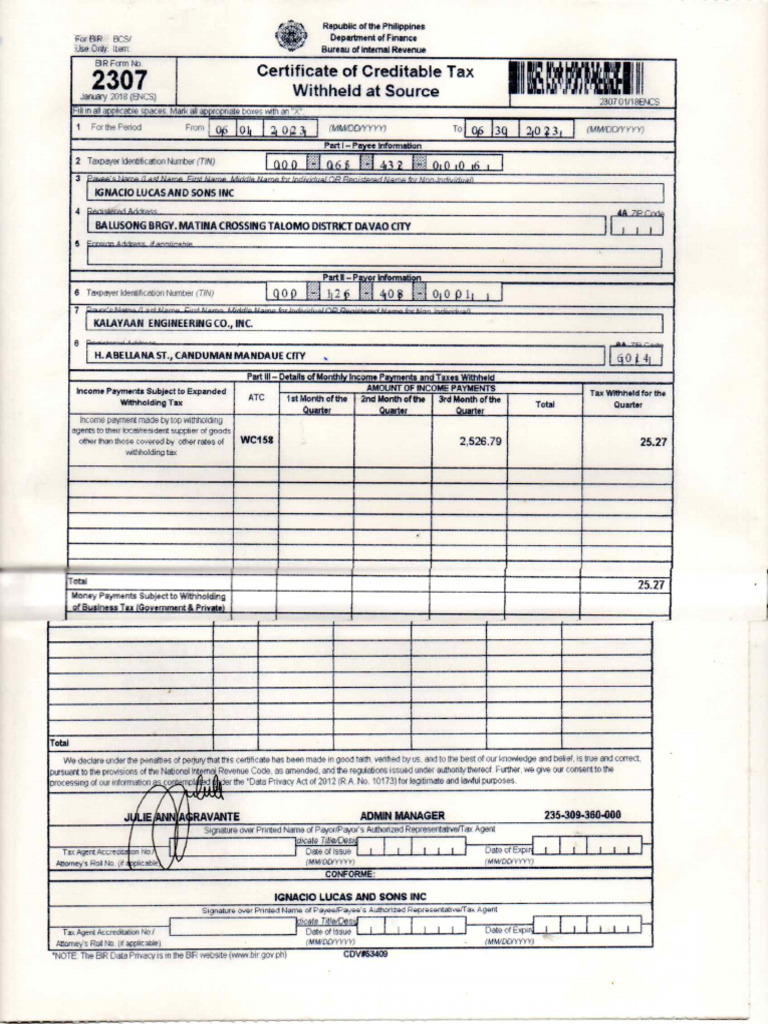 Republic of the Philippines
Department of Finance
Bureau of Internal Revenue
For BIR BCS/
Use Only: Item:
BIR Form No.
2307
January 2018 (ENCS)
Certificate of Creditable Tax
Withheld at Source
2307 01/18ENCS
Fill in all applicable spaces. Mark all appropriate boxes with an "X".
1 For the Period From 06 01 2023 (MM/DD/YYYY) To 06 30 2023 (MM/DD/YYYY)
Part I – Payee Information
2 Taxpayer Identification Number (TIN)
3 Payee's Name (Last Name, First Name, Middle Name for Individual OR Registered Name for Non-Individual)
IGNACIO LUCAS AND SONS INC
4 Registered Address 4A ZIP Code
BALUSONG BRGY. MATINA CROSSING TALOMO DISTRICT DAVAO CITY
5 Foreign Address, if applicable
Part II – Payor Information
6 Taxpayer Identification Number (TIN) 000 - 126 - 408 - 0001
7 Payor's Name (Last Name, First Name, Middle Name for Individual OR Registered Name for Non-Individual)
KALAYAAN ENGINEERING CO., INC.
8 Registered Address 8A ZIP Code
H. ABELLANA ST., CANDUMAN MANDAUE CITY 6014
Part III – Details of Monthly Income Payments and Taxes Withheld
Income Payments Subject to Expanded Withholding Tax
ATC
AMOUNT OF INCOME PAYMENTS
1st Month of the Quarter
2nd Month of the Quarter
3rd Month of the Quarter
Total
Tax Withheld for the Quarter
Income payment made by top withholding
agents to their local/resident supplier of goods
other than those covered by other rates of
withholding tax
WC158 2,526.79 25.27
Total 25.27
Money Payments Subject to Withholding
of Business Tax (Government & Private)
Total
We declare under the penalties of perjury that this certificate has been made in good faith, verified by us, and to the best of our knowledge and belief, is true and correct,
pursuant to the provisions of the National Internal Revenue Code, as amended, and the regulations issued under authority thereof. Further, we give our consent to the
processing of our information as contemplated under the *Data Privacy Act of 2012 (R.A. No. 10173) for legitimate and lawful purposes.
JULIE ANN AGRAVANTE ADMIN MANAGER 235-309-360-000
Signature over Printed Name of Payor/Payor's Authorized Representative/Tax Agent
dicate Title/Desig
Tax Agent Accreditation No./
Attorney's Roll No. (if applicable)
Date of Issue
(MM/DD/YYYY)
Date of Expir
(MM/DD/YYYY)
CONFORME:
IGNACIO LUCAS AND SONS INC
Signature over Printed Name of Payee/Payee's Authorized Representative/Tax Agent
dicate Title/Desig
Tax Agent Accreditation No./
Attorney's Roll No. (if applicable)
Date of Issue
(MM/DD/YYYY)
Date of Expir
(MM/DD/YYYY)
*NOTE: The BIR Data Privacy is in the BIR website (www.bir.gov.ph) CDV#53409